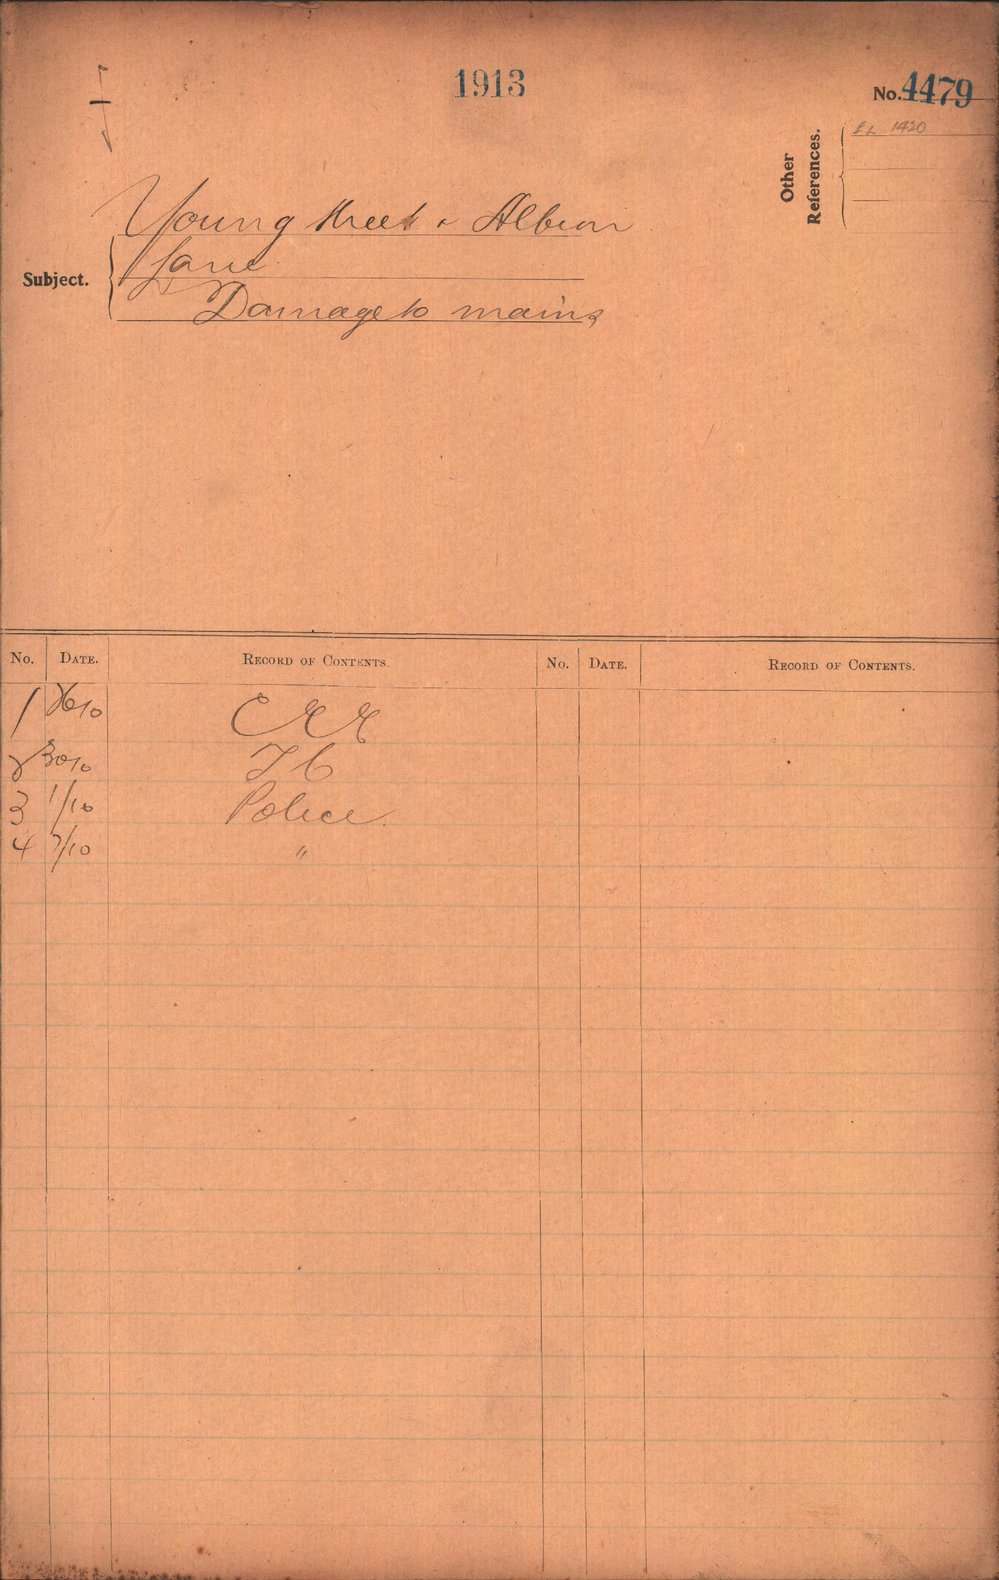 1913
No. 4479
Other References.
EL 1420
Subject.
Young Street & Albion
Lane
Damage to mains
No. DATE. RECORD OF CONTENTS. No. DATE. RECORD OF CONTENTS.
1 CEE
2 30/10 TC
3 1/10 Police
4 7/10 "